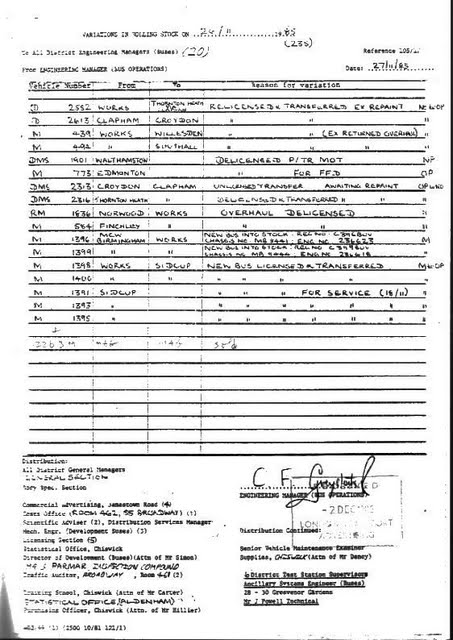 VARIATIONS IN ROLLING STOCK ON 26/11 1985
(235)
To All District Engineering Managers (Buses) (20)
Reference 105/
From ENGINEERING MANAGER (BUS OPERATIONS)
Date: 27/11/85
Vehicle Number From To Reason for variation
D 2552 WORKS THORNTON HEATH RELICENSED & TRANSFERRED EX REPAINT
D 2613 CLAPHAM CROYDON " "
M 439 WORKS WILLESDEN " " (EX RETURNED OVERHAUL)
M 492 " SOUTHALL " "
DMS 1901 WALTHAMSTOW DELICENSED P/TR MOT NP
M 773 EDMONTON " FOR F.F.D OP
DMS 2313 CROYDON CLAPHAM UNLICENSED TRANSFER AWAITING REPAINT
DMS 2316 THORNTON HEATH " DELICENSED & TRANSFERRED "
RM 1836 NORWOOD WORKS OVERHAUL DELICENSED
M 584 FINCHLEY " " "
M 1396 MCW BIRMINGHAM WORKS NEW BUS INTO STOCK: REG NO: C396BUV
CHASSIS NO. MB 8441: ENG NO. 236623 M
M 1399 " " NEW BUS INTO STOCK: REG NO C399BUV
CHASSIS NO. MB 8444: ENG NO 236618
M 1398 WORKS SIDCUP NEW BUS LICENSED & TRANSFERRED
M 1400 " " " " " "
M 1391 SIDCUP " " " FOR SERVICE (18/11)
M 1393 " " " " " " "
M 1395 " " " " " " "
Distribution:
All District General Managers
GENERAL SECTION
Body Spec. Section
Commercial Advertising, Jamestown Road (4)
Costs Office (ROOM 462, 55 BROADWAY) (1)
Scientific Adviser (2), Distribution Services Manager
Mech. Engr. (Development Buses) (3)
Licensing Section (5)
Statistical Office, Chiswick
Director of Development (Buses)(Attn of Mr Simon)
MR J PARMAR INSPECTION COMPOUND
Traffic Auditor, BROADWAY, Room 461 (2)
Training School, Chiswick (Attn of Mr Carter)
STATISTICAL OFFICE (ALDENHAM)
Purchasing Officer, Chiswick (Attn of Mr Hillier)
(1) (1500 10/81 121/1)
C. F.
ENGINEERING MANAGER (BUS OPERATIONS)
-2 DEC
Distribution Continued:
Senior Vehicle Maintenance Examiner
Supplies, CHISWICK (Attn of Mr Dancy)
6 District Test Station Supervisors
Ancillary Systems Engineer (Buses)
28 - 30 Grosvenor Gardens
Mr J Powell Technical